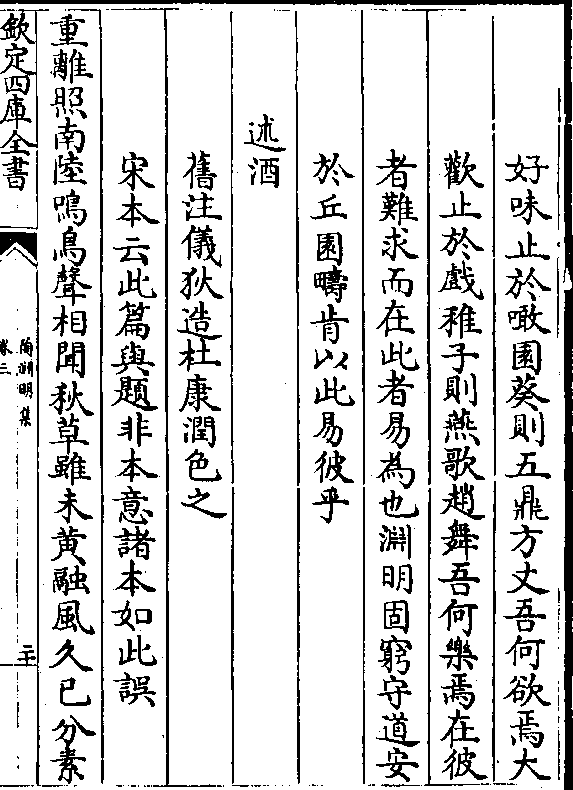 好味止於噉園葵則五鼎方丈吾何欲焉大
歡止於戲稚子則燕歌趙舞吾何樂焉在彼
者難求而在此者易為也淵明固窮守道安
於丘園疇肯以此易彼乎
述酒
舊注儀狄造杜康潤色之
宋本云此篇與題非本意諸本如此誤
重離照南陸鳴鳥聲相聞秋草雖未黃融風久已分素
欽定四庫全書
陶淵明集
卷三
二十